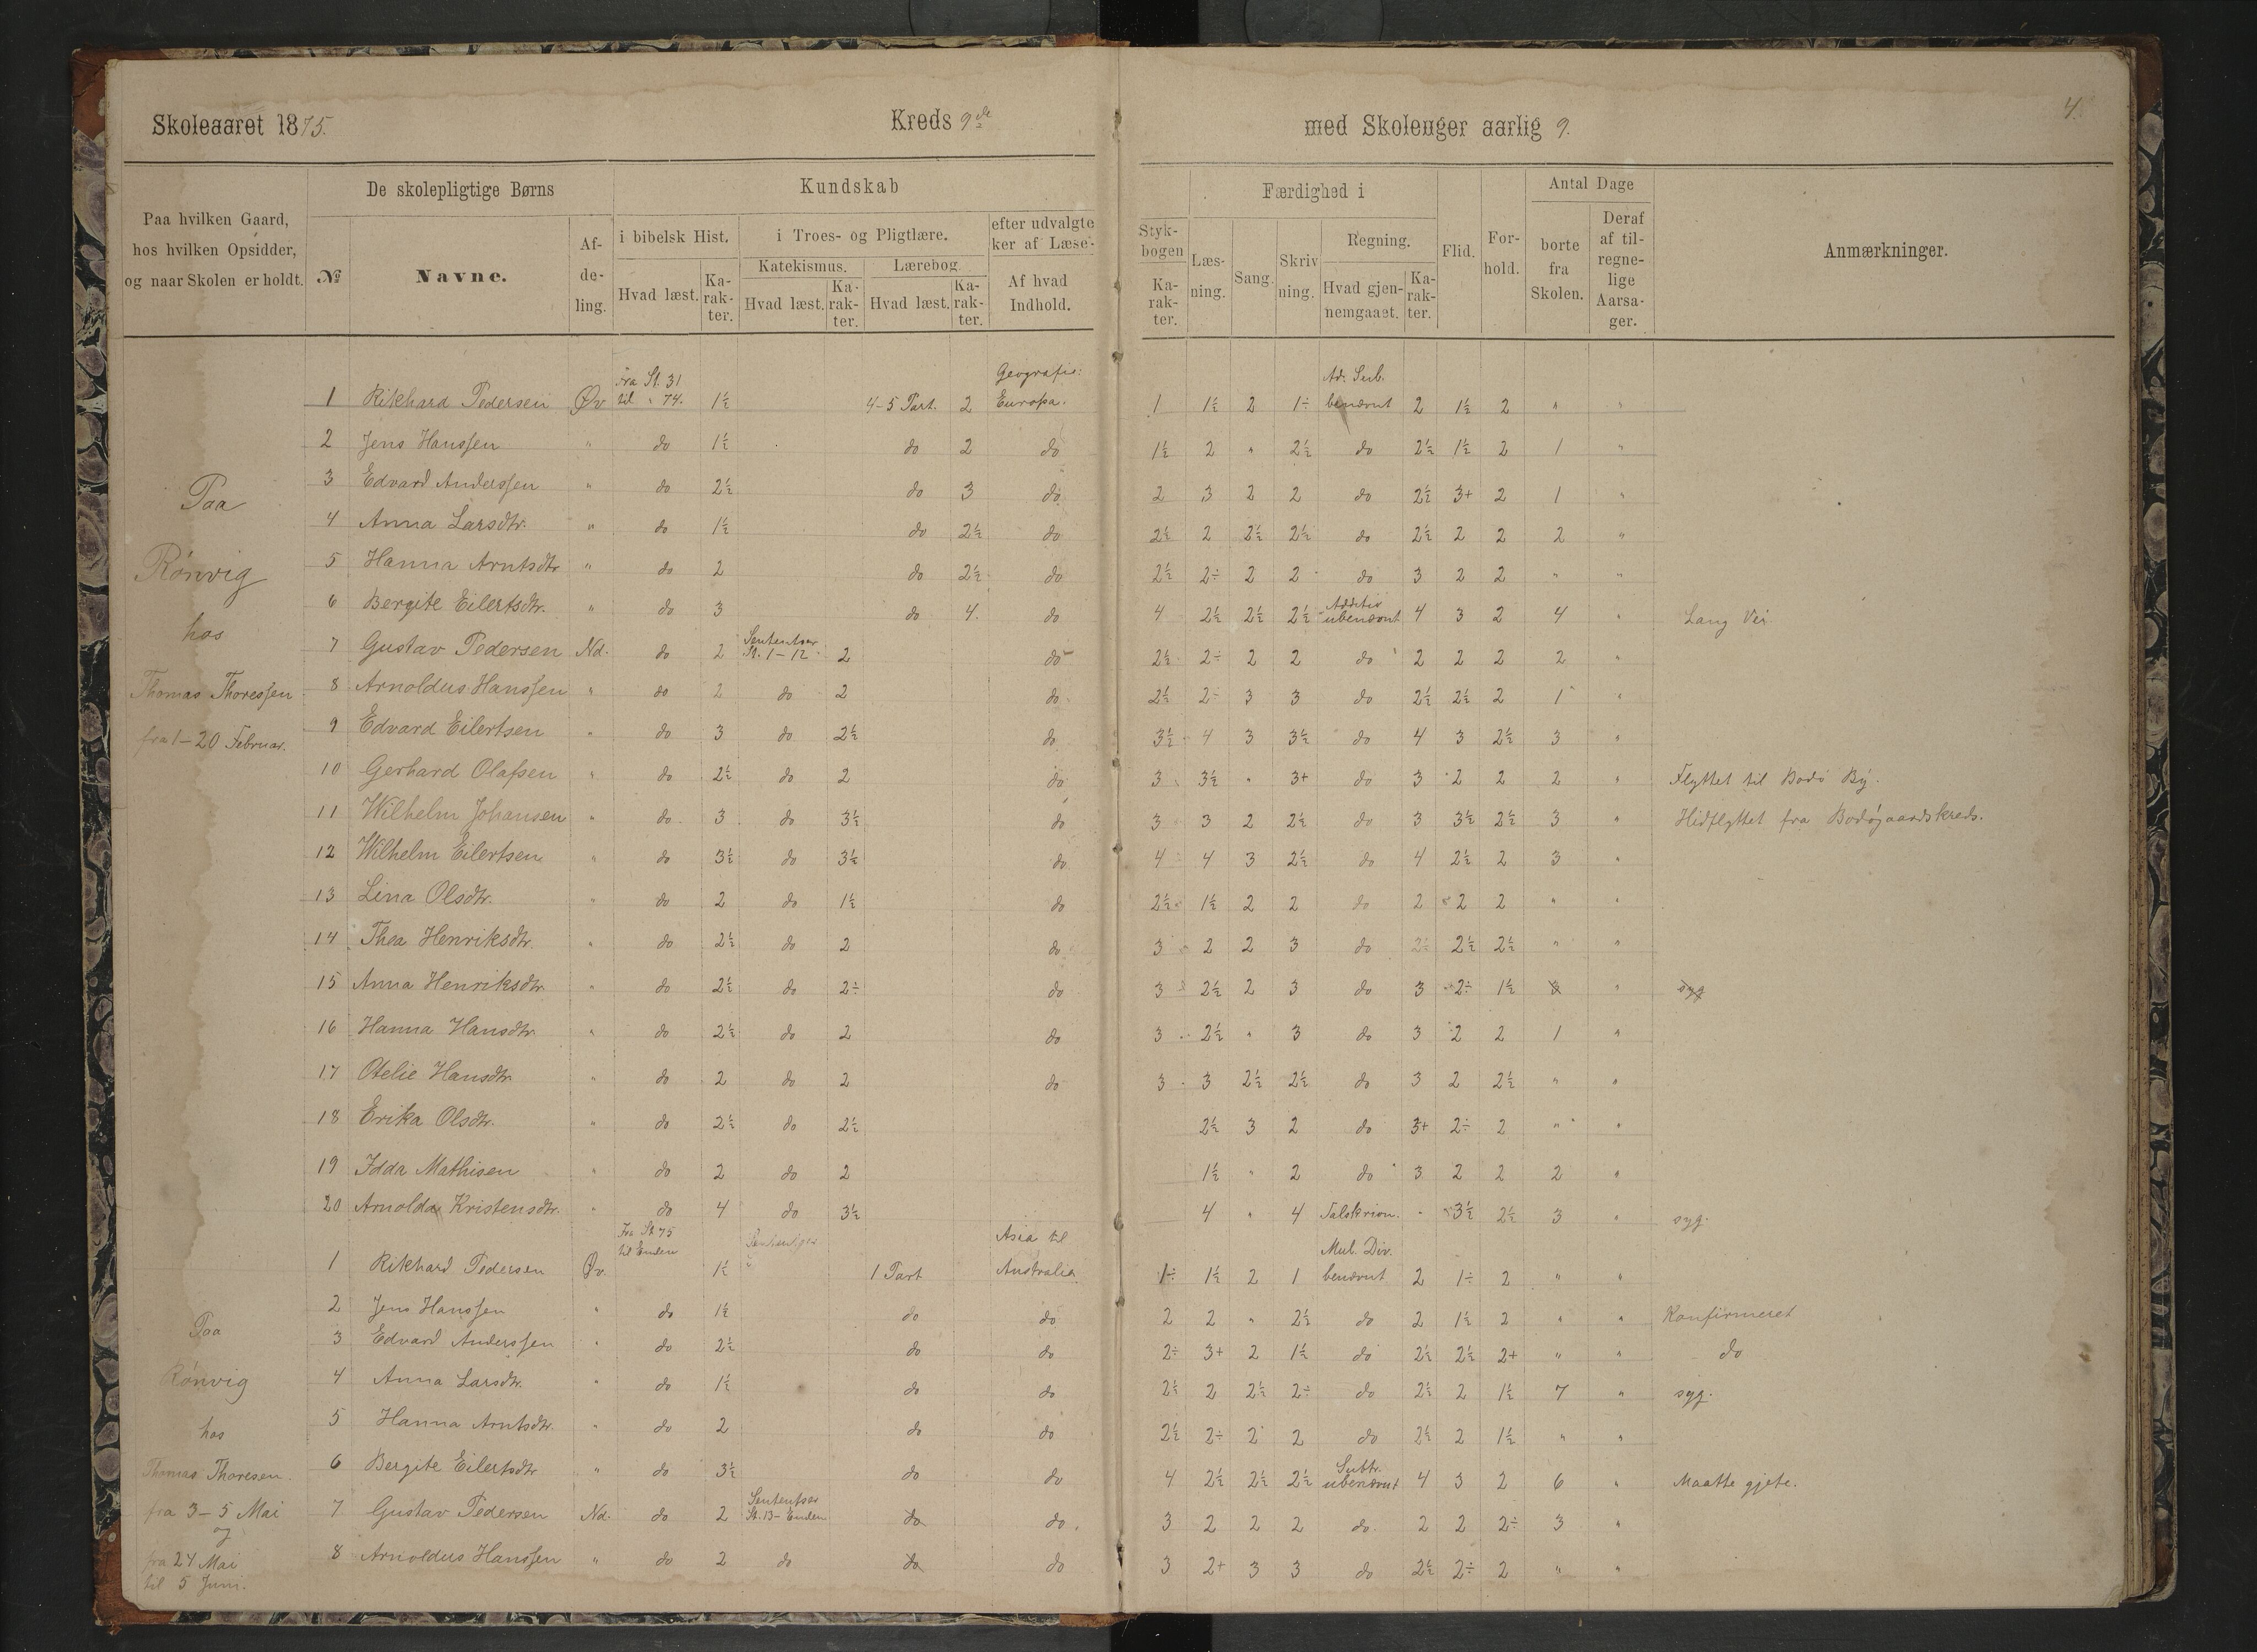 Skoleaaret 1875. Kreds 9de med Skoleuger aarlig 9. 4.
Paa hvilken Gaard, hos hvilken Opsidder, og naar Skolen er holdt.
De skolepligtige Børns
№ Navne. Afdeling.
Kundskab
i bibelsk Hist. Hvad læst. Karakter.
i Troes- og Pligtlære.
Katekismus. Hvad læst. Karakter.
Lærebog. Hvad læst. Karakter.
efter udvalgte
ker af Læse-
Af hvad Indhold.
Styk-
bogen
Karakter.
Færdighed i
Læsning. Sang. Skrivning.
Regning. Hvad gjennemgaaet. Karakter.
Flid. Forhold.
Antal Dage
borte fra Skolen. Deraf af tilregnelige Aarsager.
Anmærkninger.
Paa
Rønvig
hos
Thomas Thoressen
fra 1-20 Februar.
1 Rikhard Pedersen Øv Fra St. 31 til " 74. 1½ 4-5 Part. 2 Geografie: Europa. 1 1½ 2 1÷ Ad. Sub. benævnt 2 1½ 2 " "
2 Jens Hanssen " do 1½ do 2 do 1½ 2 " 2½ do 2½ 1½ 2 1 "
3 Edvard Anderssen " do 2½ do 3 do 2 3 2 2 do 2½ 3+ 2 1 "
4 Anna Larsdtr. " do 1½ do 2½ do 2½ 2 2½ 2½ do 2½ 2 2 2 "
5 Hanna Arntsdtr " do 2 do 2½ do 2½ 2÷ 2 2 do 3 2 2 " "
6 Bergite Eilertsdtr. " do 3 do 4. do 4 2½ 2½ 2½ Additio ubenævnt 4 3 2 4 " Lang Vei
7 Gustav Pedersen Nd. do 2 Sententser St. 1-12 2 do 2½ 2÷ 2 2 do 2 2 2 2 "
8 Arnoldus Hanssen " do 2 do 2 do 2½ 2÷ 3 3 do 2½ 2½ 2 1 "
9 Edvard Eilertsen " do 3 do 2½ do 3½ 4 3 3½ do 4 3 2½ 3 "
10 Gerhard Olafsen " do 2½ do 2 do 3 3½ " 3+ do 3 2 2 2 " Flyttet til Bodø By.
11 Wilhelm Johansen " do 3 do 3½ do 3 3 2 2½ do 3 3½ 2½ 3 " Hidflyttet fra Bodøgaardskreds.
12 Wilhelm Eilertsen " do 3½ do 3½ do 4 4 3 2½ do 4 2½ 2 3 "
13 Lina Olsdtr. " do 2 do 1½ do 2½ 1½ 2 2 do 2 2 2 " "
14 Thea Henriksdtr. " do 2½ do 2 do 3 2 2 3 do 2÷ 2½ 2½ " "
15 Anna Henriksdtr. " do 2½ do 2÷ do 3 2½ 2 3 do 3 2÷ 1½ 3 " syg
16 Hanna Hansdtr " do 2½ do 2 do 3 2½ " 3 do 3 2 2 1 "
17 Otelie Hansdtr " do 2 do 2 do 3 3 2½ 2½ do 3 2 2½ " "
18 Erika Olsdtr. " do 2½ do 2½ 2½ 3 2 do 3+ 2÷ 2 " "
19 Idda Mathisen " do 2 do 2 1½ " 2 do 3 2 2 2 "
20 Arnolda Kristensdtr. " do 4 do 3½ 4 " 4 Talskrivn. " 3½ 2½ 3 " syg.
Paa
Rønvig
hos
Thomas Thoresen.
fra 3-5 Mai
og
fra 24 Mai
til 5 Juni.
1 Rikhard Pedersen Øv. Fra St 75 til Enden 1½ 1 Part Asia til Australia 1÷ 1½ 2 1 Mul. Div. benævnt 2 1÷ 2 " "
2 Jens Hanssen " do 1½ do do 2 2 " 2½ do 2 1½ 2 " " Konfirmeret
3 Edvard Anderssen " do 2½ do do 2÷ 3+ 2 1½ do 2½ 2½ 2+ " " do
4 Anna Larsdtr. " do 1½ do do 2½ 2 2½ 2÷ do 2½ 2 1½ 7 " syg.
5 Hanna Arntsdtr. " do 2 do do 2½ 2÷ 2 2 do 2½ 2 1½ " "
6 Bergite Eilertsdtr " do 3½ do do 4 2½ 2½ 2½ Subtr. ubenævnt 4 3 2 6 " Maatte gjete.
7 Gustav Pedersen Nd. do 2 Sententser St. 13- Enden do do. 3 2 2 2 do 2 2 2÷ 3 "
8 Arnoldus Hanssen " do 2 do do do 3 2+ 3 3 do 2½ 2÷ 2 " "